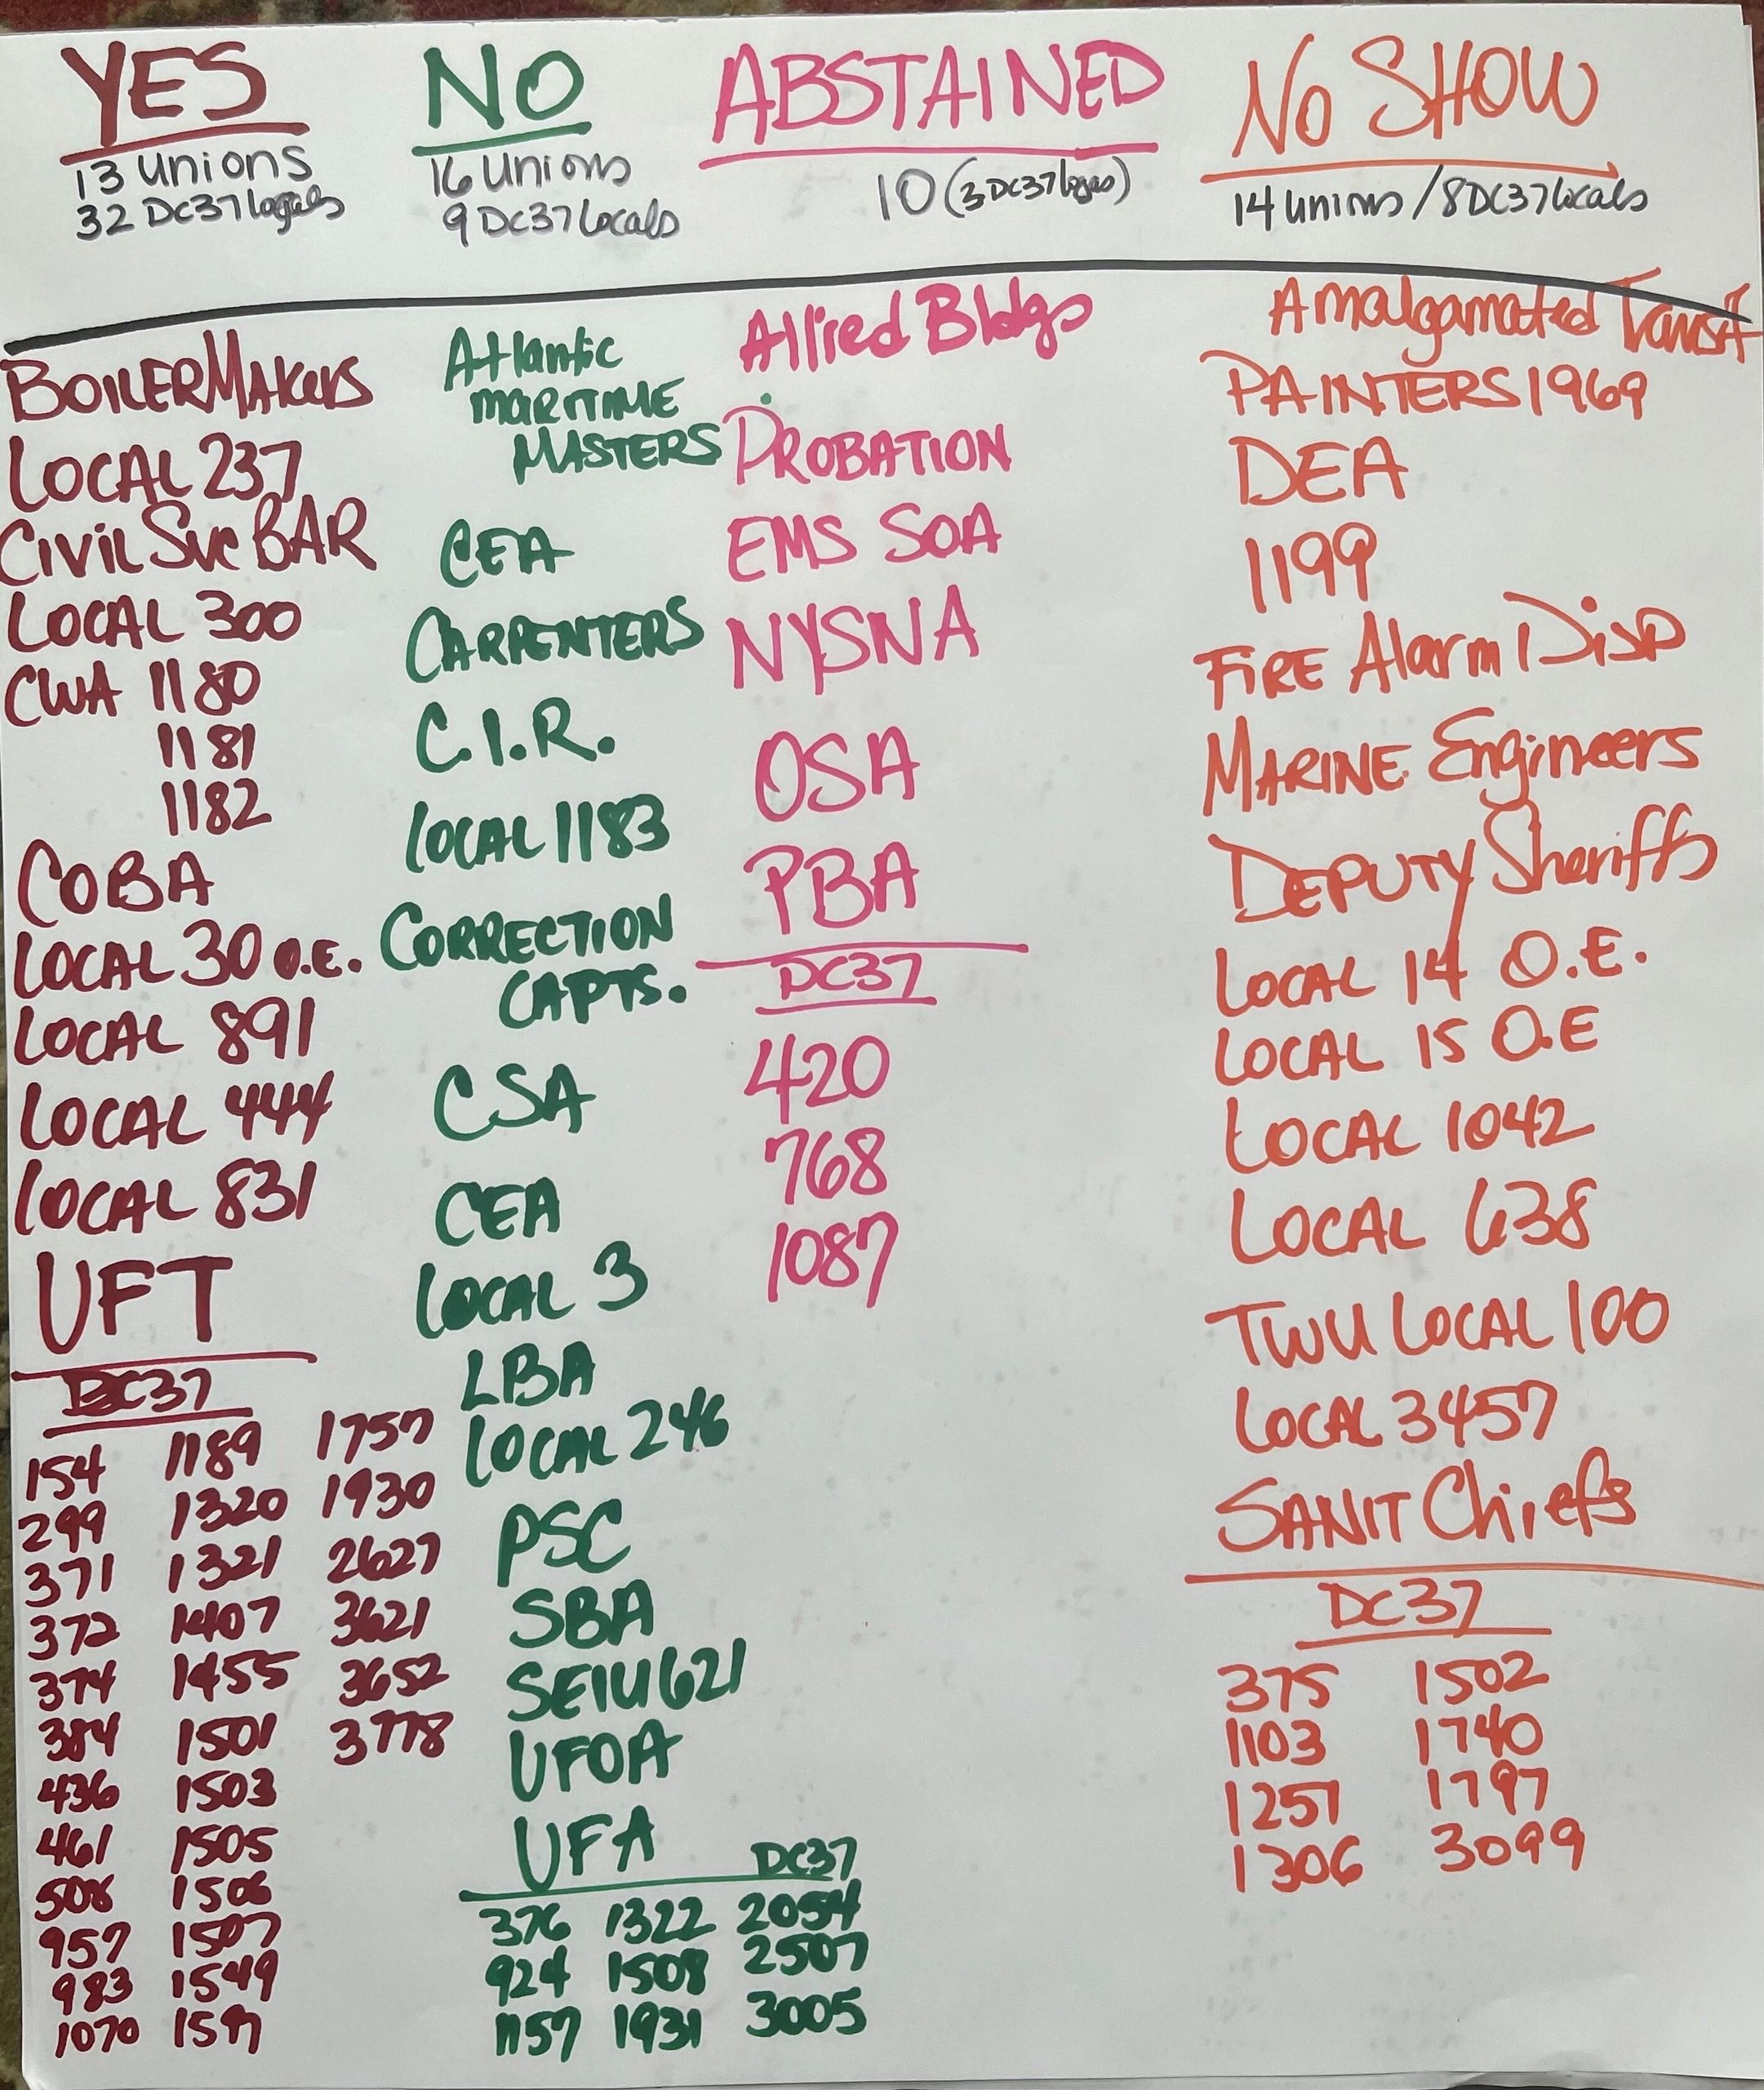 YES
13 unions
32 DC37 logals
NO
16 Unions
9 DC37 Locals
ABSTAINED
10 (3 DC37 logas)
No SHOW
14 unions / 8 DC37 locals
BOILERMAKERS
LOCAL 237
CIVIL Svc BAR
LOCAL 300
CWA 1180
1181
1182
COBA
LOCAL 30 O.E.
LOCAL 891
LOCAL 444
LOCAL 831
UFT
DC37
154 1189 1757
299 1320 1930
371 1321 2627
372 1407 3621
374 1455 3652
384 1501 3778
436 1503
461 1505
508 1506
957 1507
983 1549
1070 1597
Atlantic
MARITIME
MASTERS
CEA
CARPENTERS
C.I.R.
LOCAL 1183
CORRECTION
CAPTS.
CSA
CEA
LOCAL 3
LBA
LOCAL 246
PSC
SBA
SEIU 621
UFOA
UFA
DC37
376 1322 2054
924 1508 2507
1157 1931 3005
Allied Bldgs
PROBATION
EMS SOA
NYSNA
OSA
PBA
DC37
420
768
1087
Amalgamated Transit
PAINTERS 1969
DEA
1199
FIRE Alarm Disp
MARINE Engineers
DEPUTY Sheriffs
LOCAL 14 O.E.
LOCAL 15 O.E
LOCAL 1042
LOCAL 638
TWU LOCAL 100
LOCAL 3457
SANIT Chiefs
DC37
375 1502
1103 1740
1251 1797
1306 3099